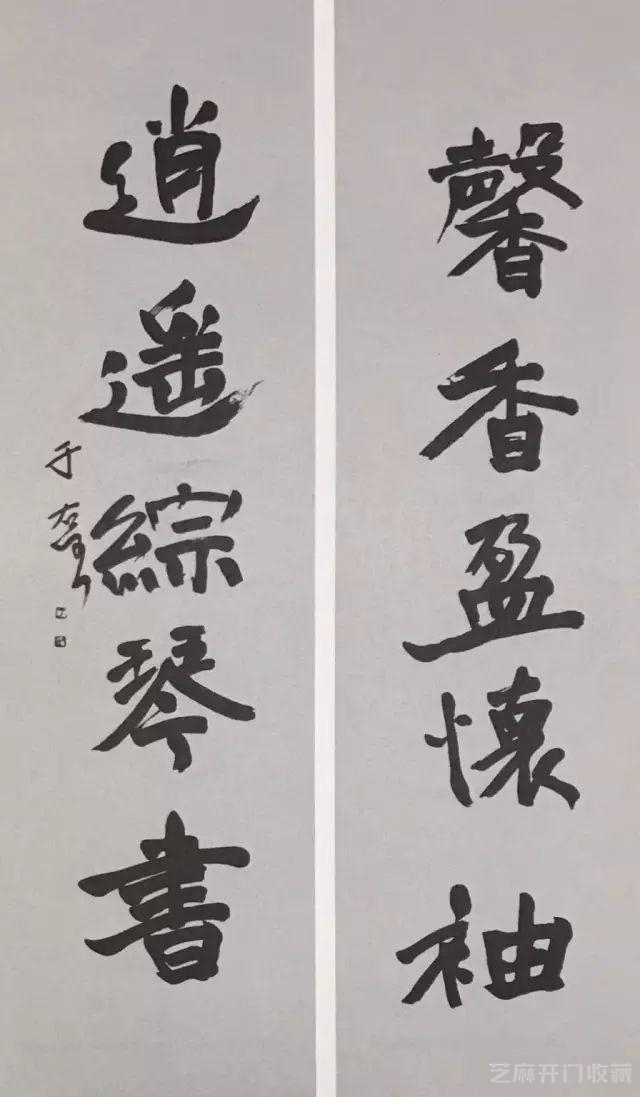 馨香盈懷袖
逍遥綜琴書
于右任
芝麻开门收藏